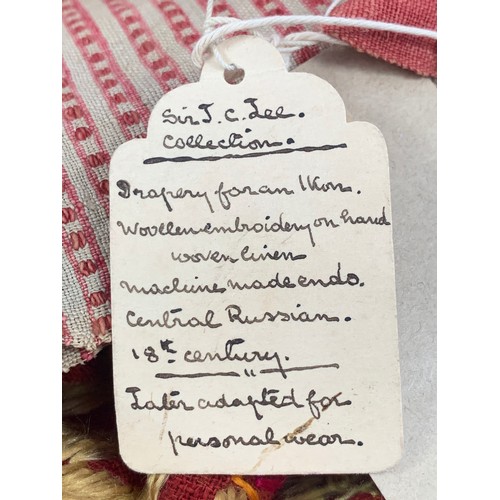 Sir J. C. Lee.
Collection.
Drapery for an Ikon.
Woollen embroidery on hand
woven linen
machine made ends.
Central Russian.
18th century.
"
Later adapted for
personal wear.